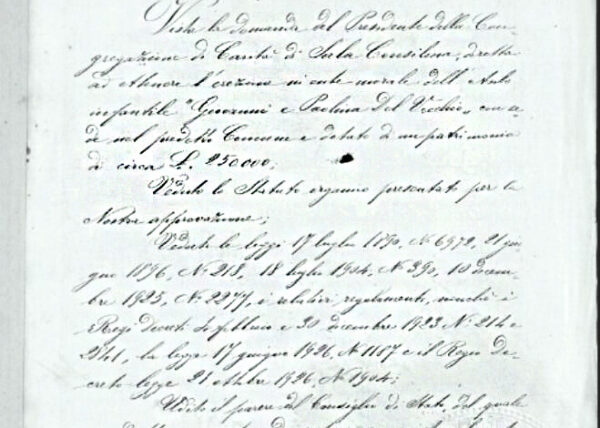 Vista la domanda del Presidente della Con-
gregazione di Carità di Sala Consilina, diretta
ad ottenere l'erezione in ente morale dell'Asilo
infantile "Giovanni e Paolina Del Vecchio" con se-
de nel predetto Comune e dotato di un patrimonio
di circa £. 250000;
Veduto lo Statuto organico presentato per la
Nostra approvazione;
Vedute le leggi 17 luglio 1890, N. 6972, 21 giu-
gno 1896, N. 218, 18 luglio 1904, N. 390, 10 dicem-
bre 1925, N. 2277, i relativi regolamenti, nonchè i
Regi Decreti 4 febbraio e 30 dicembre 1923 N. 214 e
2841, la legge 17 giugno 1926, N. 1187 e il Regio De-
creto legge 21 ottobre 1926, N. 1904;
Udito il parere del Consiglio di Stato, del quale